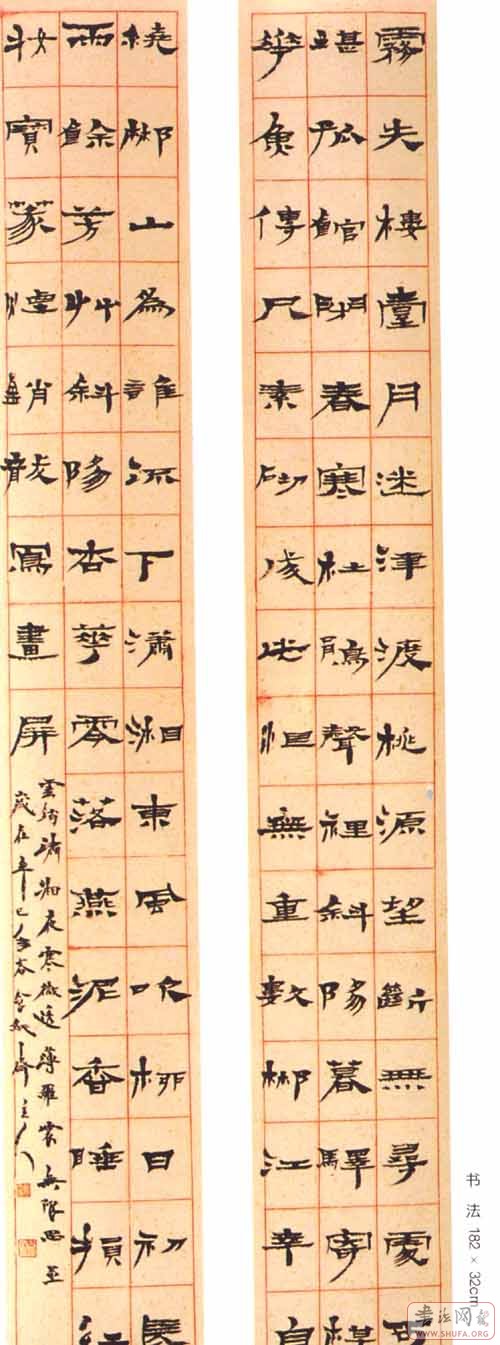 霧失樓臺月迷津渡桃源望斷無尋處可
堪孤館閉春寒杜鵑聲裡斜陽暮驛寄梅
華魚傳尺素砌成此恨無重數郴江幸自
繞郴山為誰流下瀟湘東風吹柳日初長
雨餘芳艸斜陽杏華零落燕泥香睡損紅
妝寶篆煙銷龍鳳畫屏
雲鎖瀟湘夜寒微透薄羅裳無限思
歲在辛巳
书法 182 × 32cm
WWW.SHUFA.ORG